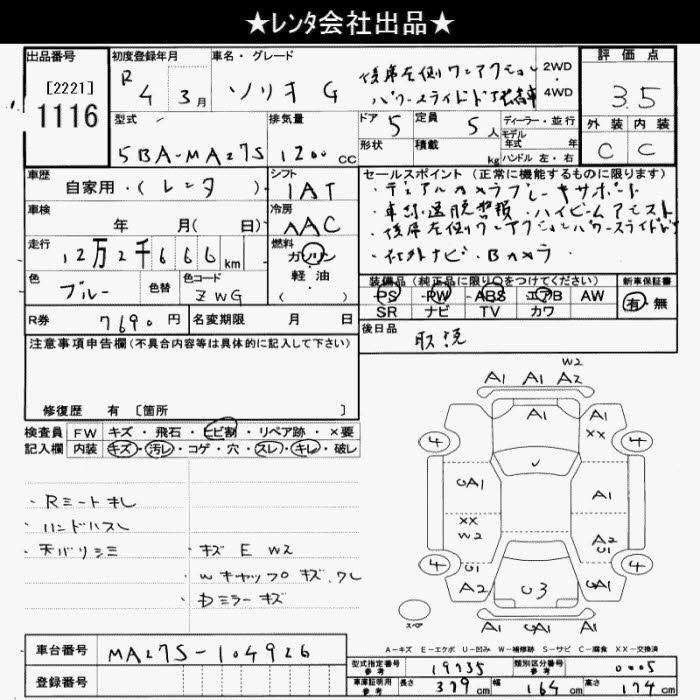 ★レンタ会社出品★
出品番号
[2221]
1116
初度登録年月
R 4 3月
車名・グレード
ソリオ G
後席左側ワンアクション
パワースライドドア装着車
2WD
4WD
評価点
3.5
外装 内装
C C
型式
5BA-MA27S
排気量
1200cc
ドア 5
定員 5人
形状
積載 kg
ディーラー・並行
モデル
年式 年
ハンドル 左・右
車歴
自家用・(レンタ)
シフト
IAT
車検
年 月( 日)
冷房
AAC
走行
12万2千666km
燃料
ガソリン
軽・油
( )
色
ブルー
色替
色コード
ZWG
R券 7690円
名変期限 月 日
セールスポイント(正常に機能するものに限ります)
・デュアルカメラブレーキサポート
・車線逸脱警報・ハイビームアシスト
・後席左側ワンアクションパワースライドドア
・社外ナビ・Bカメラ
装備品(純正品に限り○をつけてください)
PS PW ABS エアB AW
SR ナビ TV カワ
新車保証書
有・無
後日品
取説
注意事項申告欄(不具合内容等は具体的に記入して下さい)
修復歴 有 [箇所 ]
検査員
記入欄
FW キズ・飛石・ヒビ割・リペア跡・×要
内装 キズ・汚レ・コゲ・穴・スレ・キレ・破レ
・Rシートキレ
・ハンドルスレ
・天バリシミ
・キズ E W2
・Wキャップ キズ、ワレ
・Dミラーキズ
W2
A1 A1 A2
A1 A1
XX
4 4
UA1 A1
XX
W2
A2
U1
4 U1 4
A2 U3 UA1
A1 UA1 A1
スペア
A-キズ E-エクボ U-凹み W-補修跡 S-サビ C-腐食 XX-交換済
車台番号
MA27S-104926
登録番号
型式指定番号
参考
19735
類別区分番号
参考
0005
車庫証明用
参考
長さ 379cm
幅 164cm
高さ 174cm